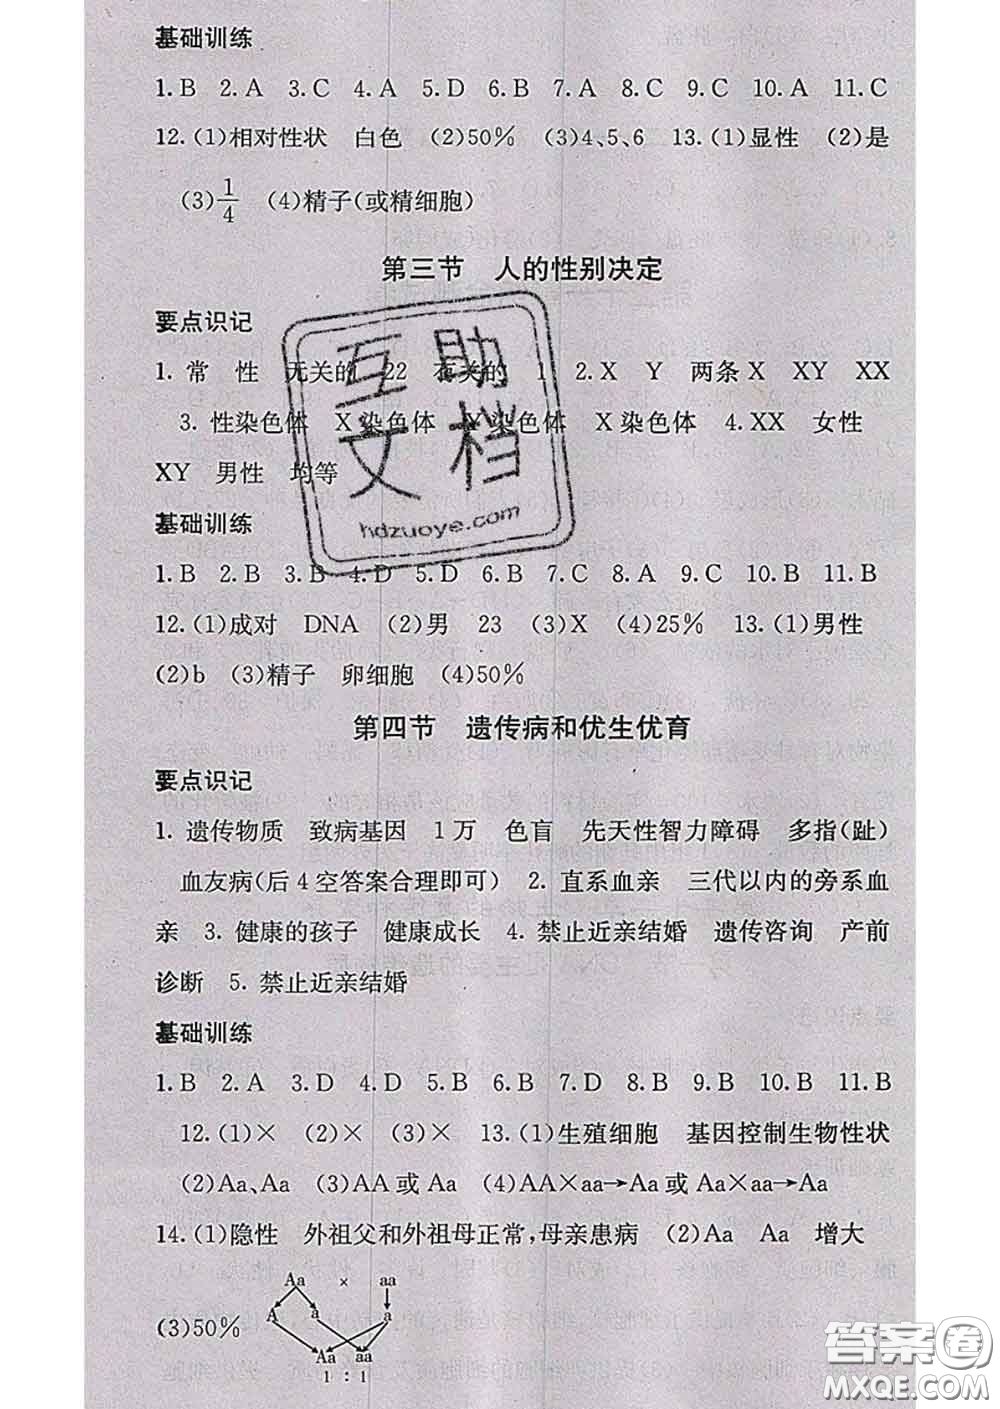 基础训练
1. B 2. A 3. C 4. A 5. D 6. B 7. A 8. C 9. C 10. A 11. C
12. (1)相对性状 白色 (2)50% (3)4、5、6 13. (1)显性 (2)是
(3)1/4 (4)精子(或精细胞)
第三节 人的性别决定
要点识记
1. 常 性 无关的 22 有关的 1 2. X Y 两条X XY XX
3. 性染色体 X染色体 Y染色体 X染色体 4. XX 女性
XY 男性 均等
基础训练
1. B 2. B 3. B 4. D 5. D 6. B 7. C 8. A 9. C 10. B 11. B
12. (1)成对 DNA (2)男 23 (3)X (4)25% 13. (1)男性
(2)b (3)精子 卵细胞 (4)50%
第四节 遗传病和优生优育
要点识记
1. 遗传物质 致病基因 1万 色盲 先天性智力障碍 多指(趾)
血友病(后4空答案合理即可) 2. 直系血亲 三代以内的旁系血
亲 3. 健康的孩子 健康成长 4. 禁止近亲结婚 遗传咨询 产前
诊断 5. 禁止近亲结婚
基础训练
1. B 2. A 3. D 4. D 5. B 6. B 7. D 8. B 9. B 10. B 11. B
12. (1)× (2)× (3)× 13. (1)生殖细胞 基因控制生物性状
(2)Aa、Aa (3)AA或Aa (4)AA×aa→Aa或Aa×aa→Aa
14. (1)隐性 外祖父和外祖母正常,母亲患病 (2)Aa Aa 增大
(3)50%
Aa × aa
A a a
Aa aa
1 : 1
互助
文档
hdzuoye.com
答案圈
MXQE.COM